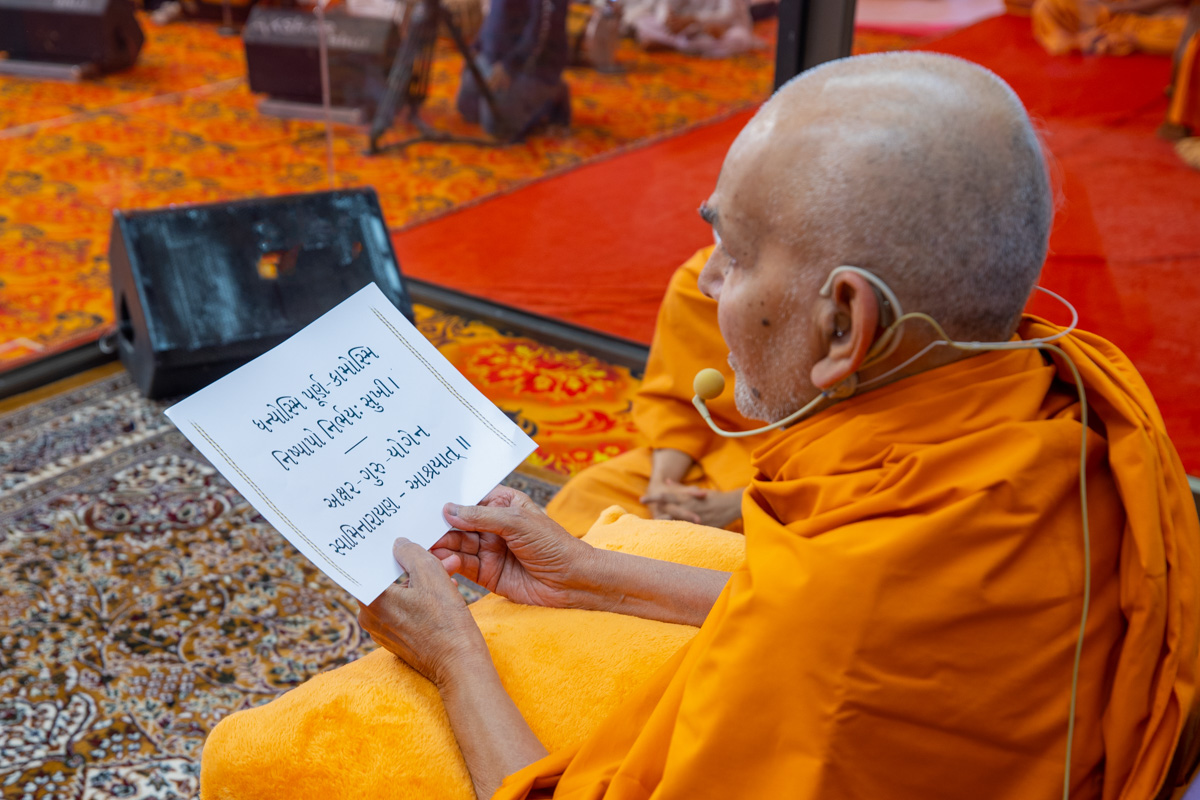 ધન્યોસ્મિ પૂર્ણ-કામોસ્મિ
નિષ્પાપો નિર્ભયઃ સુખી ।
અક્ષર-ગુરુ-યોગેન
સ્વામિનારાયણ - આશ્રયાત્ ॥